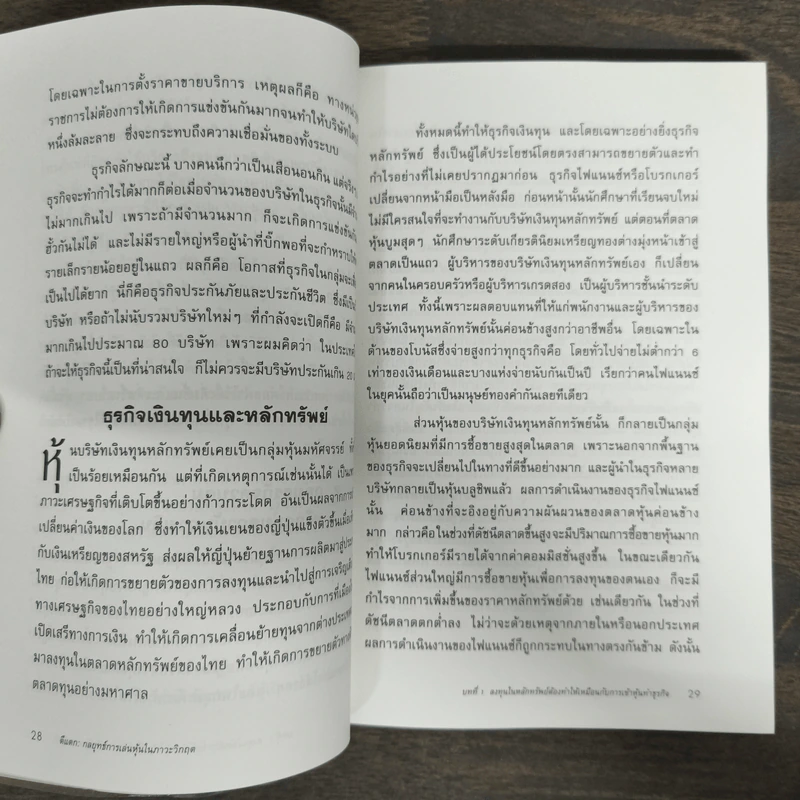 โดยเฉพาะในการตั้งราคาขายบริการ เหตุผลก็คือ
ราชการไม่ต้องการให้เกิดการแข่งขันกันมากจนทำให้บริษัทใด
หนึ่งล้มละลาย ซึ่งจะกระทบถึงความเชื่อมั่นของทั้งระบบ
ธุรกิจลักษณะนี้ บางคนนึกว่าเป็นเสือนอนกิน แต่จริงๆ
ธุรกิจจะทำกำไรได้มากก็ต่อเมื่อจำนวนของบริษัทในธุรกิจนั้นมี
ไม่มากเกินไป เพราะถ้ามีจำนวนมาก ก็จะเกิดการแข่งขัน
ฮั้วกันไม่ได้ และไม่มีรายใหญ่หรือผู้นำที่บิ๊กพอที่จะกำหราบให้
รายเล็กรายน้อยอยู่ในแถว ผลก็คือ โอกาสที่ธุรกิจในกลุ่มจะ
เป็นไปได้ยาก นี่ก็คือธุรกิจประกันภัยและประกันชีวิต ซึ่งมี
บริษัท หรือถ้าไม่นับรวมบริษัทใหม่ๆ ที่กำลังจะเปิดก็คือ มี
มากเกินไปประมาณ 80 บริษัท เพราะผมคิดว่า ในประเทศ
ถ้าจะให้ธุรกิจนี้เป็นที่น่าสนใจ ก็ไม่ควรจะมีบริษัทประกันเกิน 20
ธุรกิจเงินทุนและหลักทรัพย์
หุ้นบริษัทเงินทุนหลักทรัพย์เคยเป็นกลุ่มหุ้นมหัศจรรย์
เป็นร้อยเหมือนกัน แต่ที่เกิดเหตุการณ์เช่นนั้นได้
ภาวะเศรษฐกิจที่เติบโตขึ้นอย่างก้าวกระโดด อันเป็นผลจากการ
เปลี่ยนค่าเงินของโลก ซึ่งทำให้เงินเยนของญี่ปุ่นแข็งตัวขึ้นเมื่อ
กับเงินเหรียญของสหรัฐ ส่งผลให้ญี่ปุ่นย้ายฐานการผลิตมาสู่
ไทย ก่อให้เกิดการขยายตัวของการลงทุนและนำไปสู่การเจริญ
ทางเศรษฐกิจของไทยอย่างใหญ่หลวง ประกอบกับการที่
เปิดเสรีทางการเงิน ทำให้เกิดการเคลื่อนย้ายทุนจากต่างประเทศ
มาลงทุนในตลาดหลักทรัพย์ของไทย ทำให้เกิดการขยายตัว
ตลาดทุนอย่างมหาศาล
28 ตีแตก: กลยุทธ์การเล่นหุ้นในภาวะวิกฤต
ทั้งหมดนี้ทำให้ธุรกิจเงินทุน และโดยเฉพาะอย่างยิ่งธุรกิจ
หลักทรัพย์ ซึ่งเป็นผู้ได้ประโยชน์โดยตรงสามารถขยายตัวและทำ
กำไรอย่างที่ไม่เคยปรากฏมาก่อน ธุรกิจไฟแนนซ์หรือโบรกเกอร์
เปลี่ยนจากหน้ามือเป็นหลังมือ ก่อนหน้านั้นนักศึกษาที่เรียนจบใหม่
ไม่มีใครสนใจที่จะทำงานกับบริษัทเงินทุนหลักทรัพย์ แต่ตอนที่ตลาด
หุ้นบูมสุดๆ นักศึกษาระดับเกียรตินิยมเหรียญทองต่างมุ่งหน้าเข้าสู่
ตลาดเป็นแถว ผู้บริหารของบริษัทเงินทุนหลักทรัพย์เอง ก็เปลี่ยน
จากคนในครอบครัวหรือผู้บริหารเกรดสอง เป็นผู้บริหารชั้นนำระดับ
ประเทศ ทั้งนี้เพราะผลตอบแทนที่ให้แก่พนักงานและผู้บริหารของ
บริษัทเงินทุนหลักทรัพย์นั้นค่อนข้างสูงกว่าอาชีพอื่น โดยเฉพาะใน
ด้านของโบนัสซึ่งจ่ายสูงกว่าทุกธุรกิจคือ โดยทั่วไปจ่ายไม่ต่ำกว่า 6
เท่าของเงินเดือนและบางแห่งจ่ายนับกันเป็นปี เรียกว่าคนไฟแนนซ์
ในยุคนั้นถือว่าเป็นมนุษย์ทองคำกันเลยทีเดียว
ส่วนหุ้นของบริษัทเงินทุนหลักทรัพย์นั้น ก็กลายเป็นกลุ่ม
หุ้นยอดนิยมที่มีการซื้อขายสูงสุดในตลาด เพราะนอกจากพื้นฐาน
ของธุรกิจจะเปลี่ยนไปในทางที่ดีขึ้นอย่างมาก และผู้นำในธุรกิจหลาย
บริษัทกลายเป็นหุ้นบลูชิพแล้ว ผลการดำเนินงานของธุรกิจไฟแนนซ์
นั้น ค่อนข้างที่จะอิงอยู่กับความผันผวนของตลาดหุ้นค่อนข้าง
มาก กล่าวคือในช่วงที่ดัชนีตลาดขึ้นสูงจะมีปริมาณการซื้อขายหุ้นมาก
ทำให้โบรกเกอร์มีรายได้จากค่าคอมมิสชั่นสูงขึ้น ในขณะเดียวกัน
ไฟแนนซ์ส่วนใหญ่มีการซื้อขายหุ้นเพื่อการลงทุนของตนเอง ก็จะมี
กำไรจากการเพิ่มขึ้นของราคาหลักทรัพย์ด้วย เช่นเดียวกัน ในช่วงที่
ดัชนีตลาดตกต่ำลง ไม่ว่าจะด้วยเหตุจากภายในหรือนอกประเทศ
ผลการดำเนินงานของไฟแนนซ์ก็ถูกกระทบในทางตรงกันข้าม ดังนั้น
บทที่ 1 ลงทุนในหลักทรัพย์ต้องทำให้เหมือนกับการเข้าหุ้นทำธุรกิจ 29